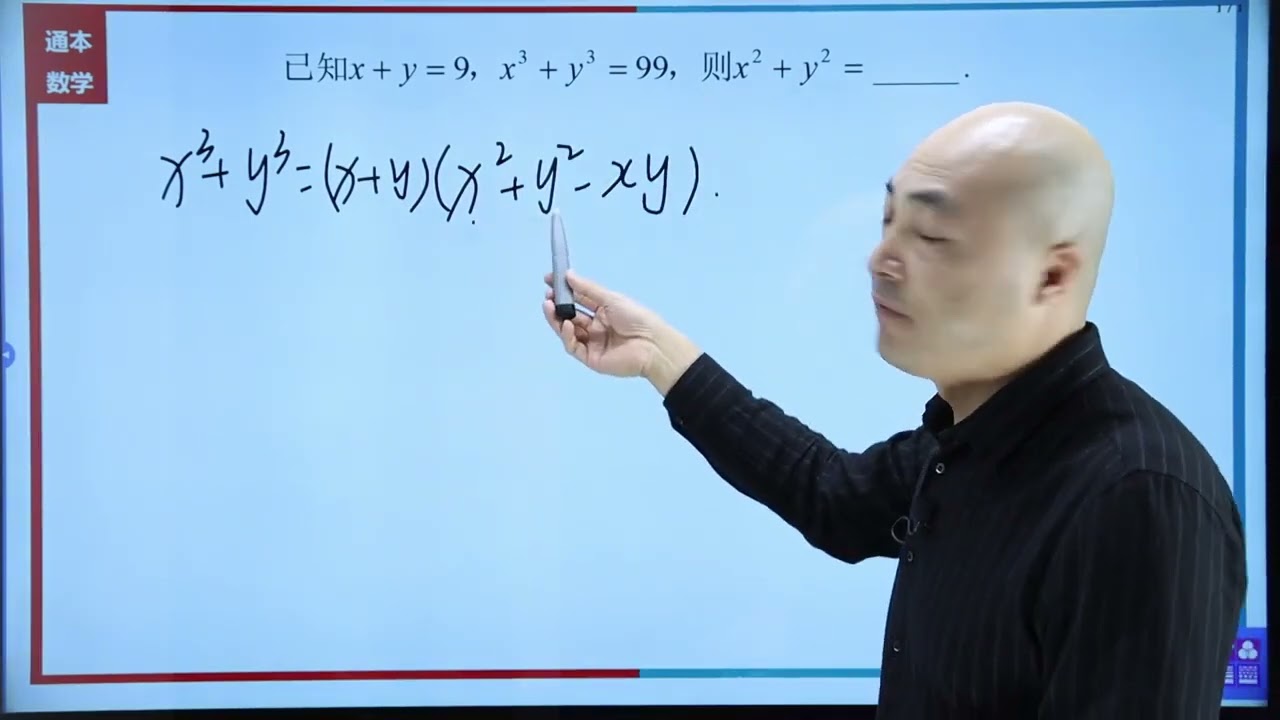 通本
数学
已知x + y = 9，x³ + y³ = 99，则x² + y² = ______.
x³+y³=(x+y)(x²+y²-xy).